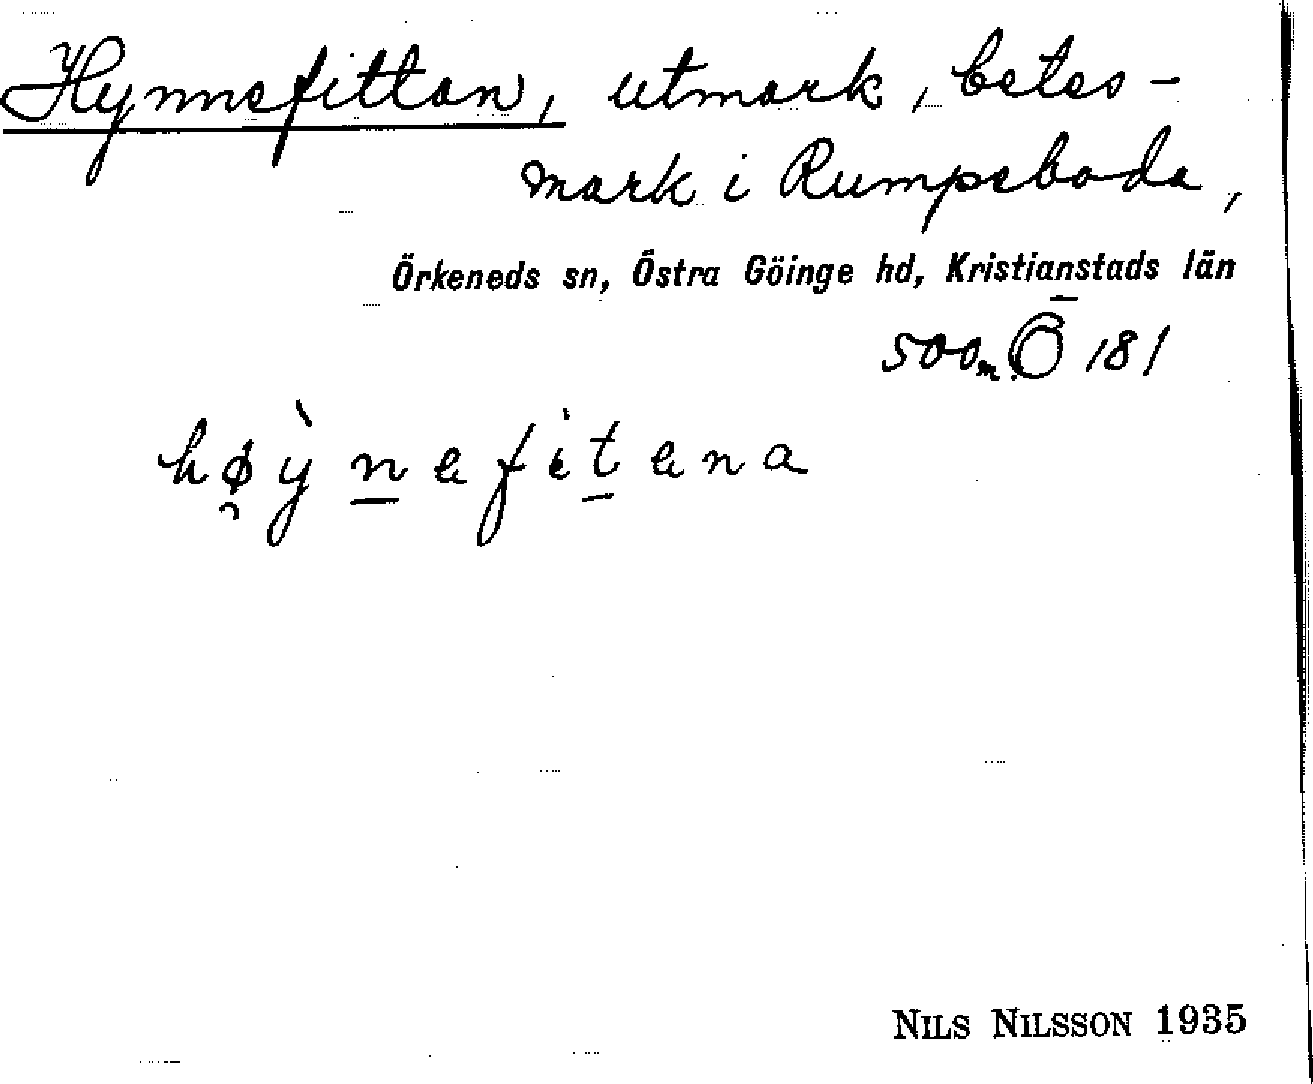 Hynnefittan, utmark, betes-
mark i Rumpeboda,
Örkeneds sn, Östra Göinge hd, Kristianstads län
500 m. Ö 181
høỳnefitena
NILS NILSSON 1935